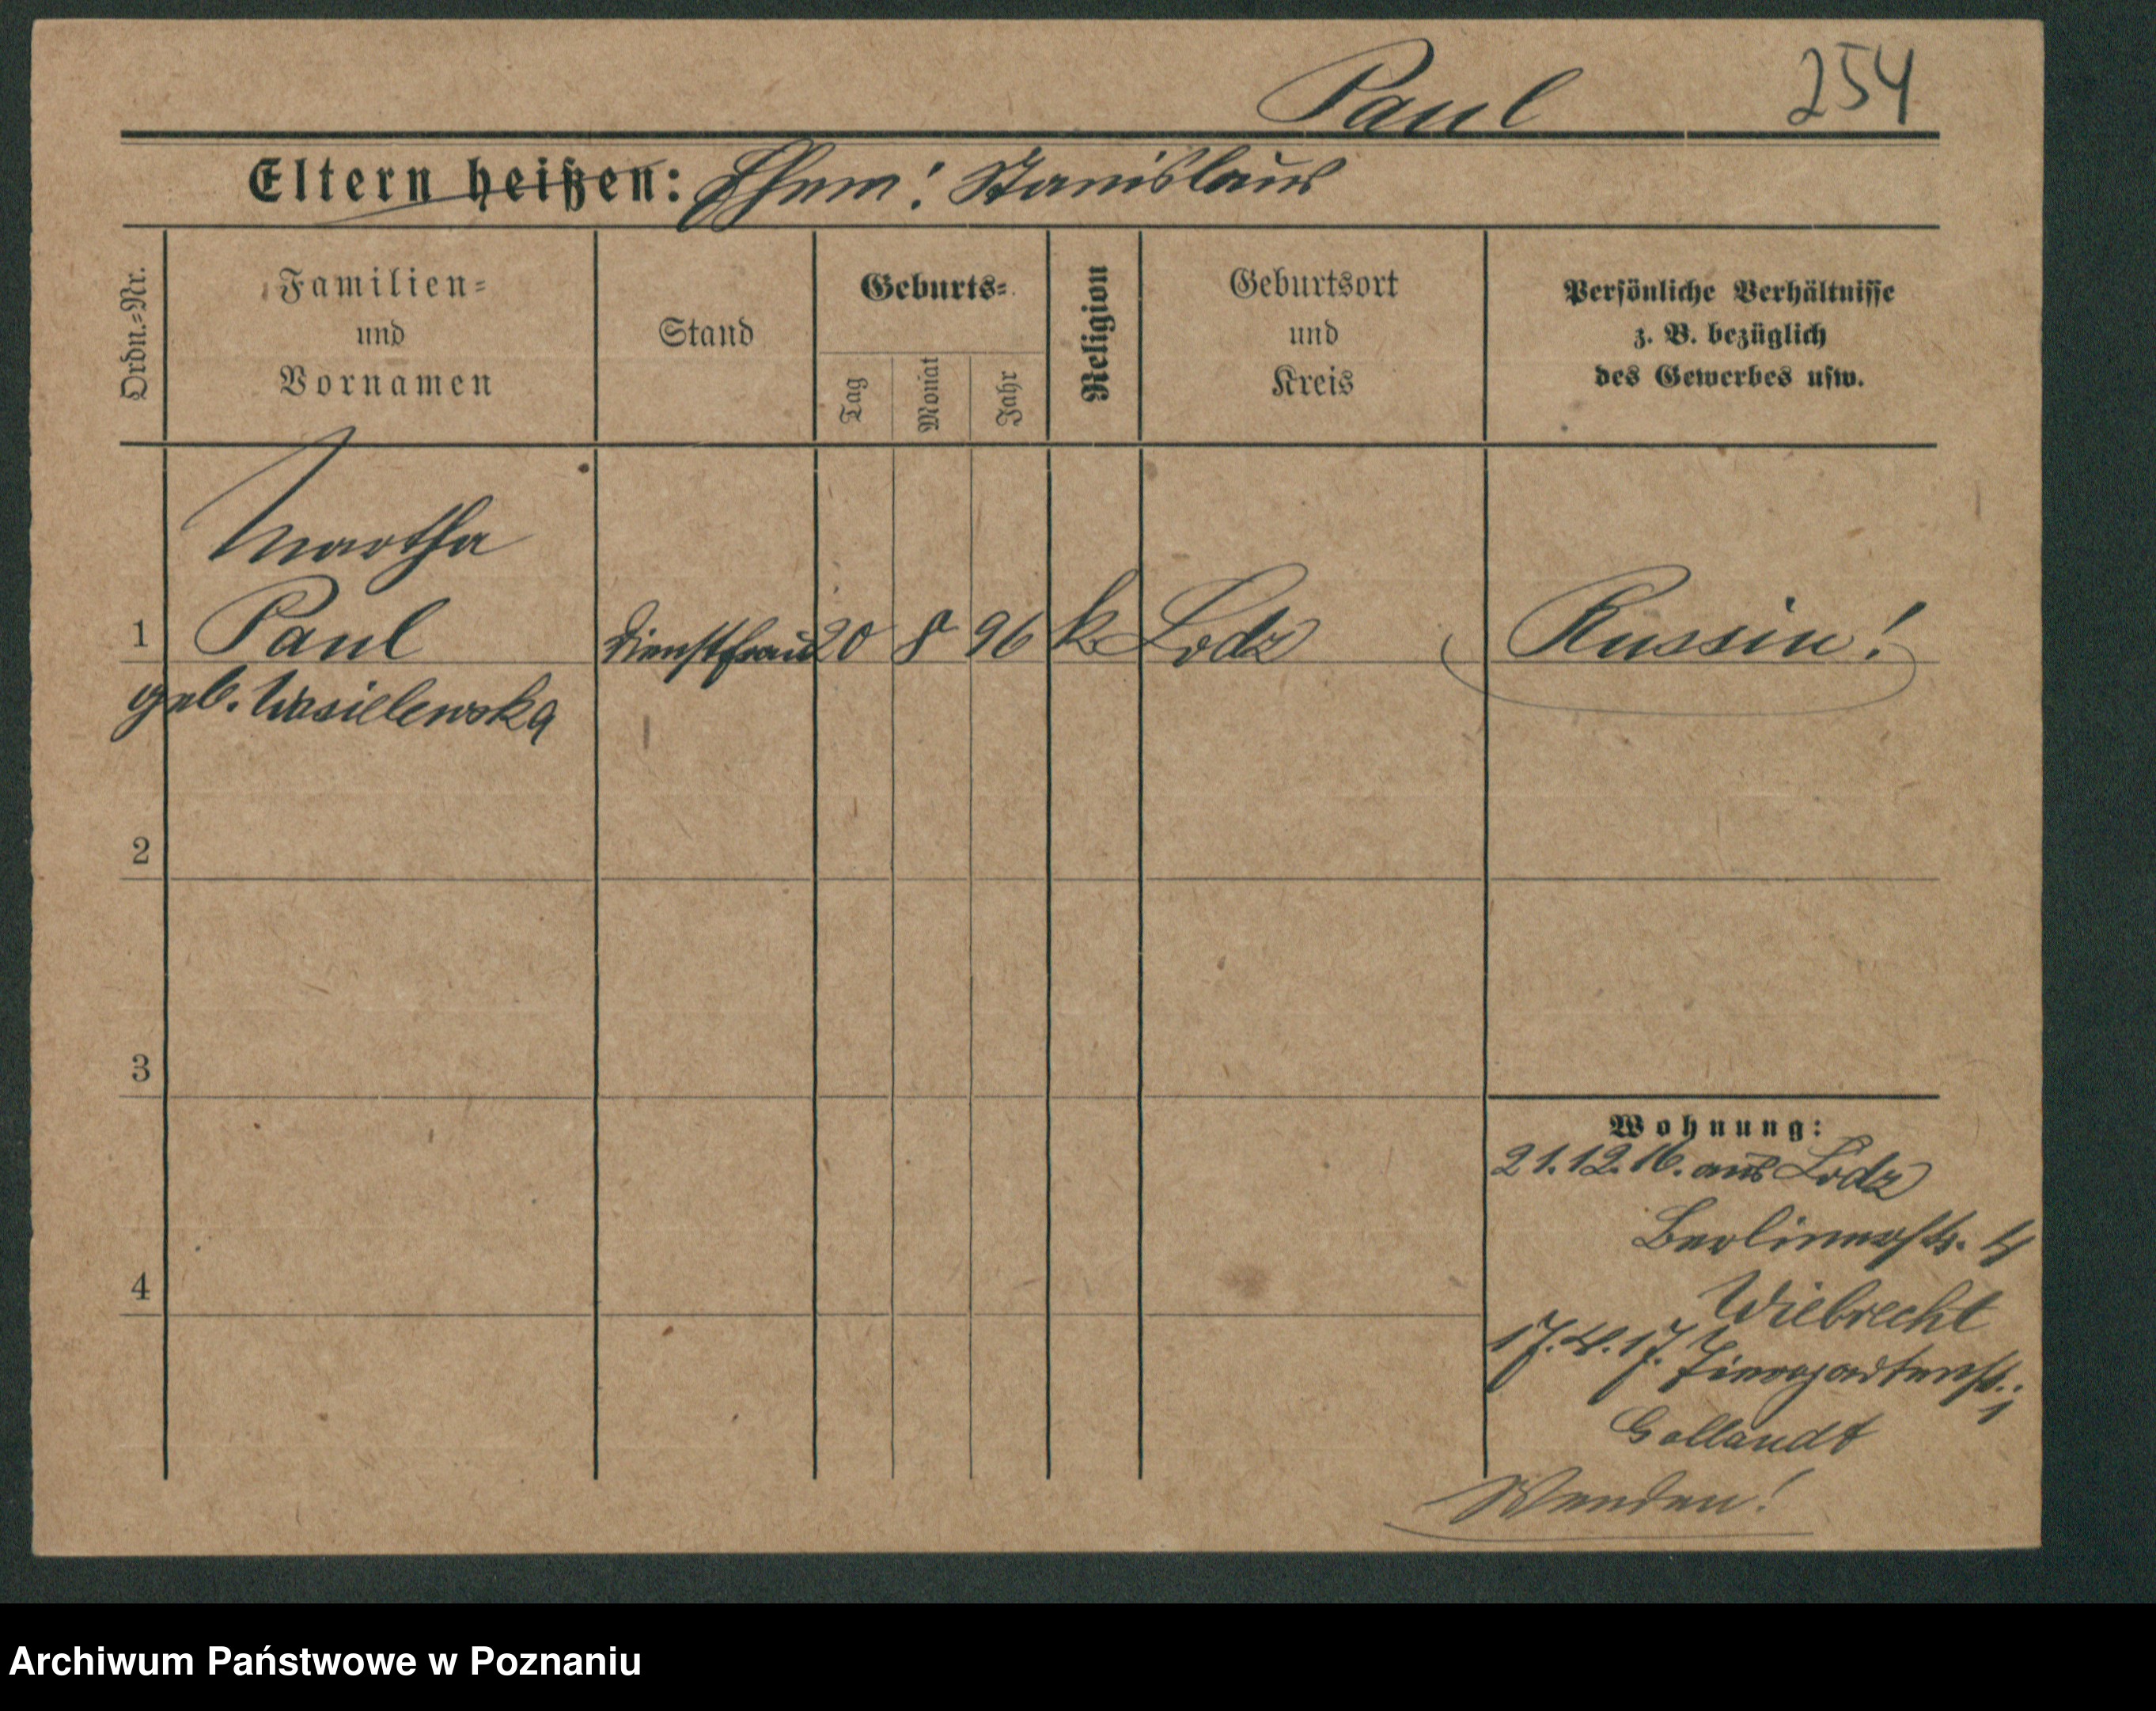 Paul 254
Eltern heißen: Ehem: Stanislaus
Ordn.-Nr.
Familien-
und
Vornamen
Stand
Geburts-
Tag
Monat
Jahr
Religion
Geburtsort
und
Kreis
Persönliche Verhältnisse
z. B. bezüglich
des Gewerbes usw.
Martha
1 Paul Dienstfrau 20 8 96 k Lodz Russin!
geb. Wasielewska
2
3
4
Wohnung:
21.12.16. aus Lodz
Berlinerstr. 4
Wiebrecht
17. 17. Tiergartenstr. 1
Gollandt
Wenden!
Archiwum Państwowe w Poznaniu